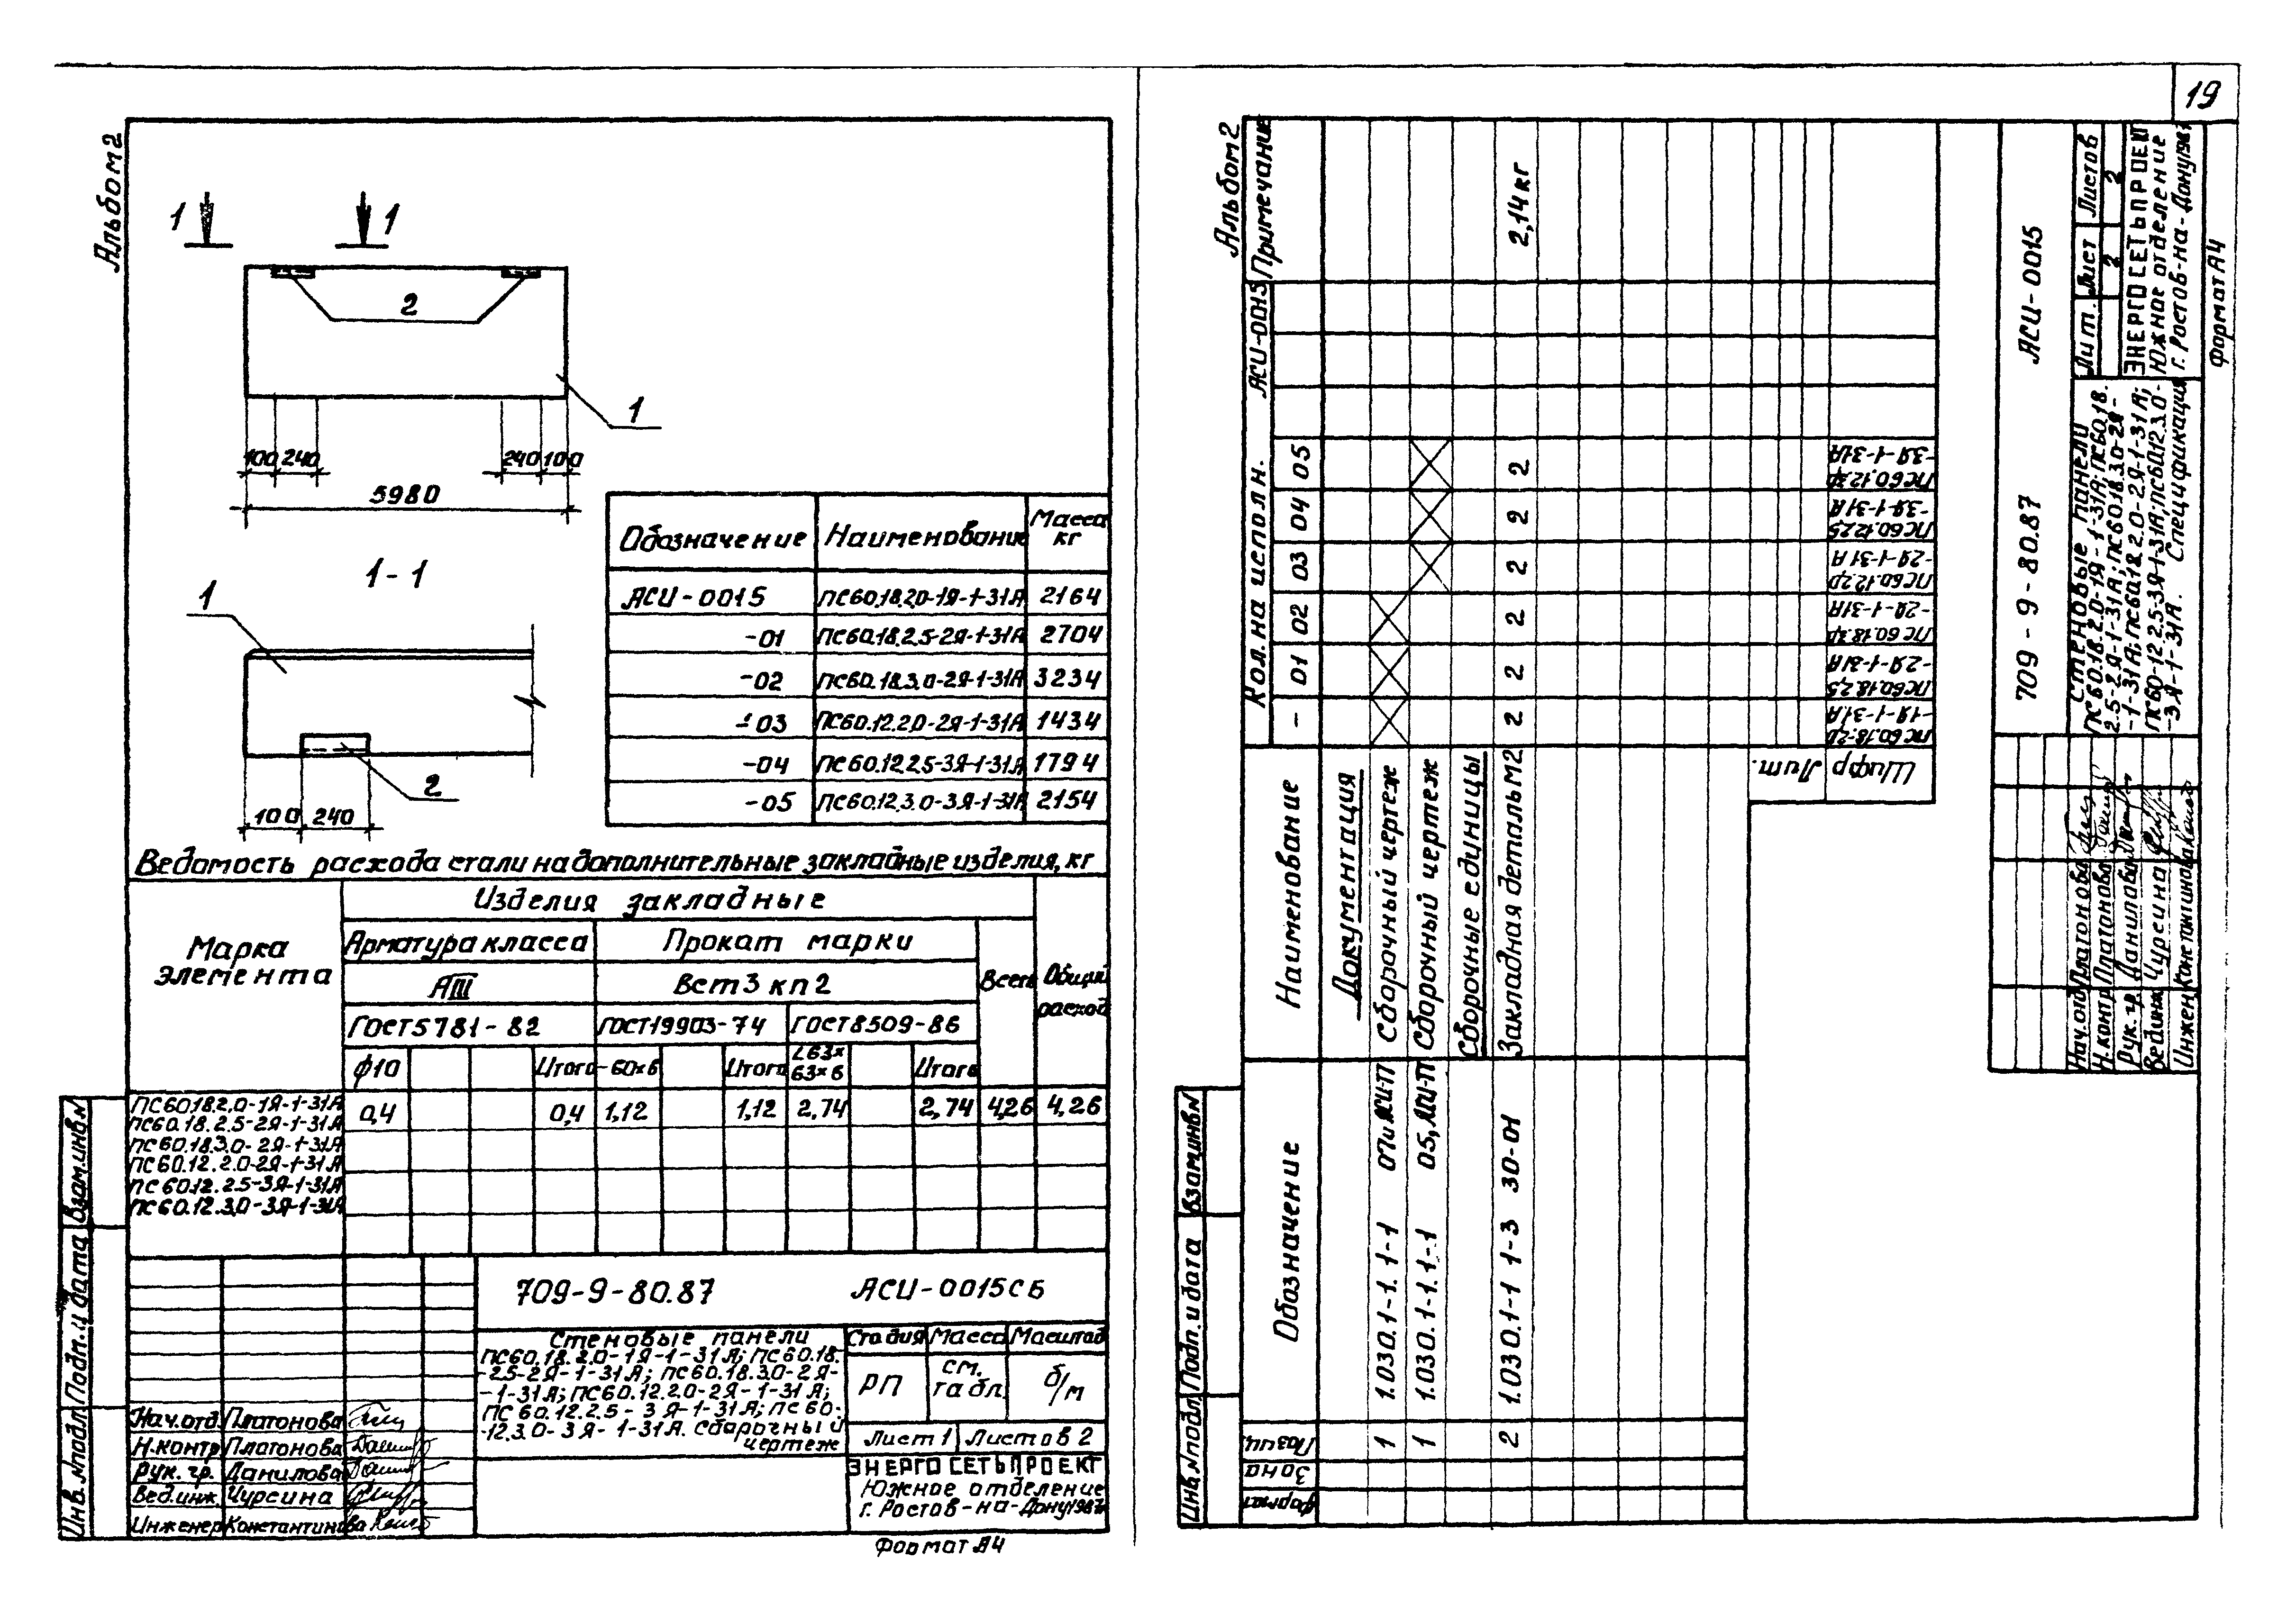 19
Альбом 2
1 1
2
1
100 240 240 100
5980
1-1
1
2
100 240
Обозначение Наименование Масса кг
АСИ-0015 ПС60.18.2.0-1Я-1-31А 2164
-01 ПС60.18.2.5-2Я-1-31А 2704
-02 ПС60.18.3.0-2Я-1-31А 3234
-03 ПС60.12.2.0-2Я-1-31А 1434
-04 ПС60.12.2.5-3Я-1-31А 1794
-05 ПС60.12.3.0-3Я-1-31А 2154
Ведомость расхода стали на дополнительные закладные изделия, кг
Марка элемента
Изделия закладные
Арматура класса Прокат марки
АIII Вст3кп2 Всего Общий расход
ГОСТ5781-82 ГОСТ19903-74 ГОСТ8509-86
ф10 Итого -60×6 Итого L63×63×6 Итого
ПС60.18.2.0-1Я-1-31А 0,4 0,4 1,12 1,12 2,74 2,74 4,26 4,26
ПС60.18.2.5-2Я-1-31А
ПС60.18.3.0-2Я-1-31А
ПС60.12.2.0-2Я-1-31А
ПС60.12.2.5-3Я-1-31А
ПС60.12.3.0-3Я-1-31А
709-9-80.87 АСИ-0015СБ
Стеновые панели
ПС60.18.2.0-1Я-1-31А; ПС60.18.
-2.5-2Я-1-31А; ПС60.18.3.0-2Я-
-1-31А; ПС60.12.2.0-2Я-1-31А;
ПС60.12.2.5-3Я-1-31А; ПС60.
-12.3.0-3Я-1-31А. Сборочный
чертеж
Стадия Масса Масштаб
РП см. табл. б/м
Лист 1 Листов 2
ЭНЕРГОСЕТЬПРОЕКТ
Южное отделение
г. Ростов-на-Дону 1987
Нач.отд. Платонова
Н.контр Платонова
Рук. гр. Данилова
Вед.инж. Чурсина
Инженер Константинова
Инв.№подл. Подп. и дата Взам.инв.№
Формат А4
Альбом 2
Формат Зона Позиц. Обозначение Наименование Кол. на исполн. АСИ-0015 Примечание
- 01 02 03 04 05
Документация
1 1.030.1-1.1-1 07и АСИ-П Сборочный чертеж
1 1.030.1-1.1-1 05, АСИ-П Сборочный чертеж
Сборочные единицы
2 1.030.1-1 1-3 30-01 Закладная деталь М2 2 2 2 2 2 2 2,14кг
Лит.
Шифр
ПС60.18.2.0 -1Я-1-31А
ПС60.18.2,5 -2Я-1-31А
ПС60.18.3.0 -2Я-1-31А
ПС60.12.2.0 -2Я-1-31А
ПС60.12.2.5 -3Я-1-31А
ПС60.12.3.0 -3Я-1-31А
709-9-80.87 АСИ-0015
Стеновые панели
ПС60.18.2.0-1Я-1-31А; ПС60.18.
2.5-2Я-1-31А; ПС60.18.3.0-2Я-
-1-31А; ПС60.12.2.0-2Я-1-31А;
ПС60.12.2.5-3Я-1-31А; ПС60.12.3.0-
-3Я-1-31А. Спецификация
Лит. Лист Листов
2 2
ЭНЕРГОСЕТЬПРОЕКТ
Южное отделение
г. Ростов-на-Дону 1987
Нач.отд Платонова
Н.контр Платонова
Рук. гр. Данилова
Вед.инж Чурсина
Инжен Константинова
Инв.№подл. Подп. и дата Взам.инв.№
Формат А4